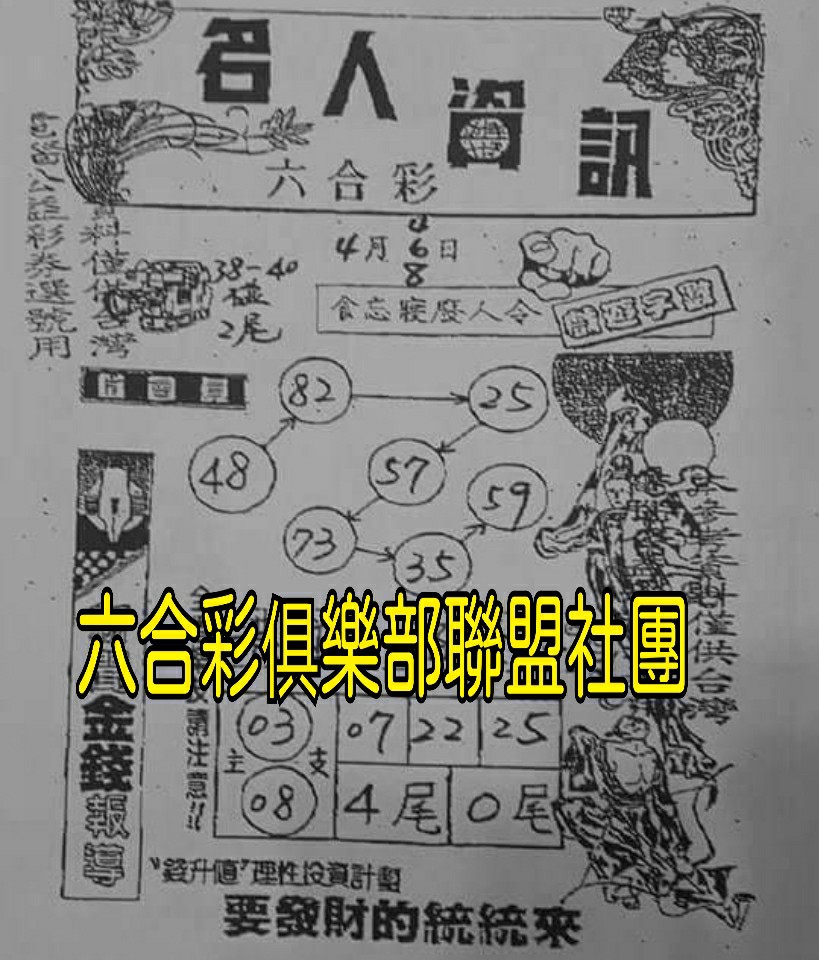 名人資訊
六合彩
4月4 6 8日
38-40
碰
2尾
食忘寢廢人令
戲迎字數
資料僅供台灣
公益彩券選號用
82
25
48
57
59
73
35
參考資料僅供台灣
六合彩俱樂部聯盟社團
請注意!!
金錢報導
主
支
03
07
22
25
08
4尾
0尾
"錢升值"理性投資計劃
要發財的統統來